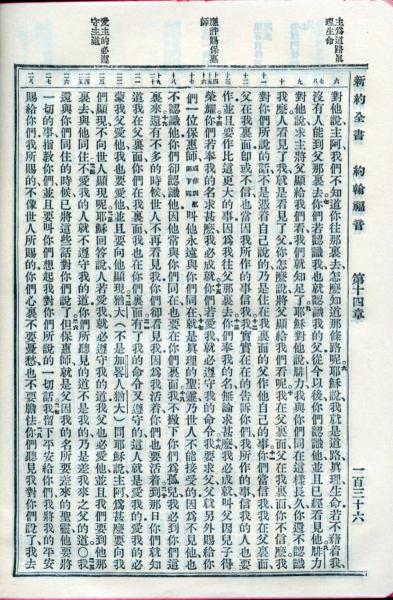 新約全書 約翰福音 第十四章 一百三十六
主爲道路眞理生命
應許賜保惠師
愛主的必遵守主道
對他說主阿我們不知道你往那裏去怎麼知道那條路呢耶穌說我就是道路眞理生命若不藉着我
沒有人能到父那裏去你們若認識我也就認識我的父從今以後你們認識他並且已經看見他腓力
對他說求主將父顯給我們看我們就知足了耶穌對他說腓力我與你們同在這樣長久你還不認識
我麼人看見了我就是看見了父你怎麼說將父顯給我們看呢我在父裏面父在我裏面你不信麼我
對你們所說的話不是憑着自己說的乃是住在我裏面的父作他自己的事你們當信我在父裏面
父在我裏面卽或不信也當因我所作的事信我我實實在在的告訴你們我所作的事信我的人也要
作並且要作比這更大的事因爲我往父那裏去你們奉我的名無論求甚麼我必成就叫父因兒子得
榮耀你們若奉我的名求甚麼我必成就你們若愛我就必遵守我的命令我要求父父就另外賜給你
們一位保惠師叫他永遠與你們同在就是眞理的聖靈乃世人不能接受的因爲不見他也
不認識他你們卻認識他因他常與你們同在也要在你們裏面我不撇下你們爲孤兒我必到你們這
裏來還有不多的時候世人不再看見我你們卻看見我因爲我活着你們也要活着到那日你們就知
道我在父裏面你們在我裏面我也在你們裏面有了我的命令又遵守的這人就是愛我的愛我的必
蒙我父愛他我也要愛他並且要向他顯現猶大（不是加畧人猶大）問耶穌說主阿爲甚麼要向我
們顯現不向世人顯現呢耶穌回答說人若愛我就必遵守我的道我父也必愛他並且我們要到他那
裏去與他同住不愛我的人就不遵守我的道你們所聽見的道不是我的乃是差我來之父的道○我
還與你們同住的時候已將這些話對你們說了但保惠師就是父因我的名所要差來的聖靈他要將
一切的事指教你們並且要叫你們想起我對你們所說的一切話我留下平安給你們我將我的平安
賜給你們我所賜的不像世人所賜的你們心裏不要憂愁也不要膽怯你們聽見我對你們說了我去